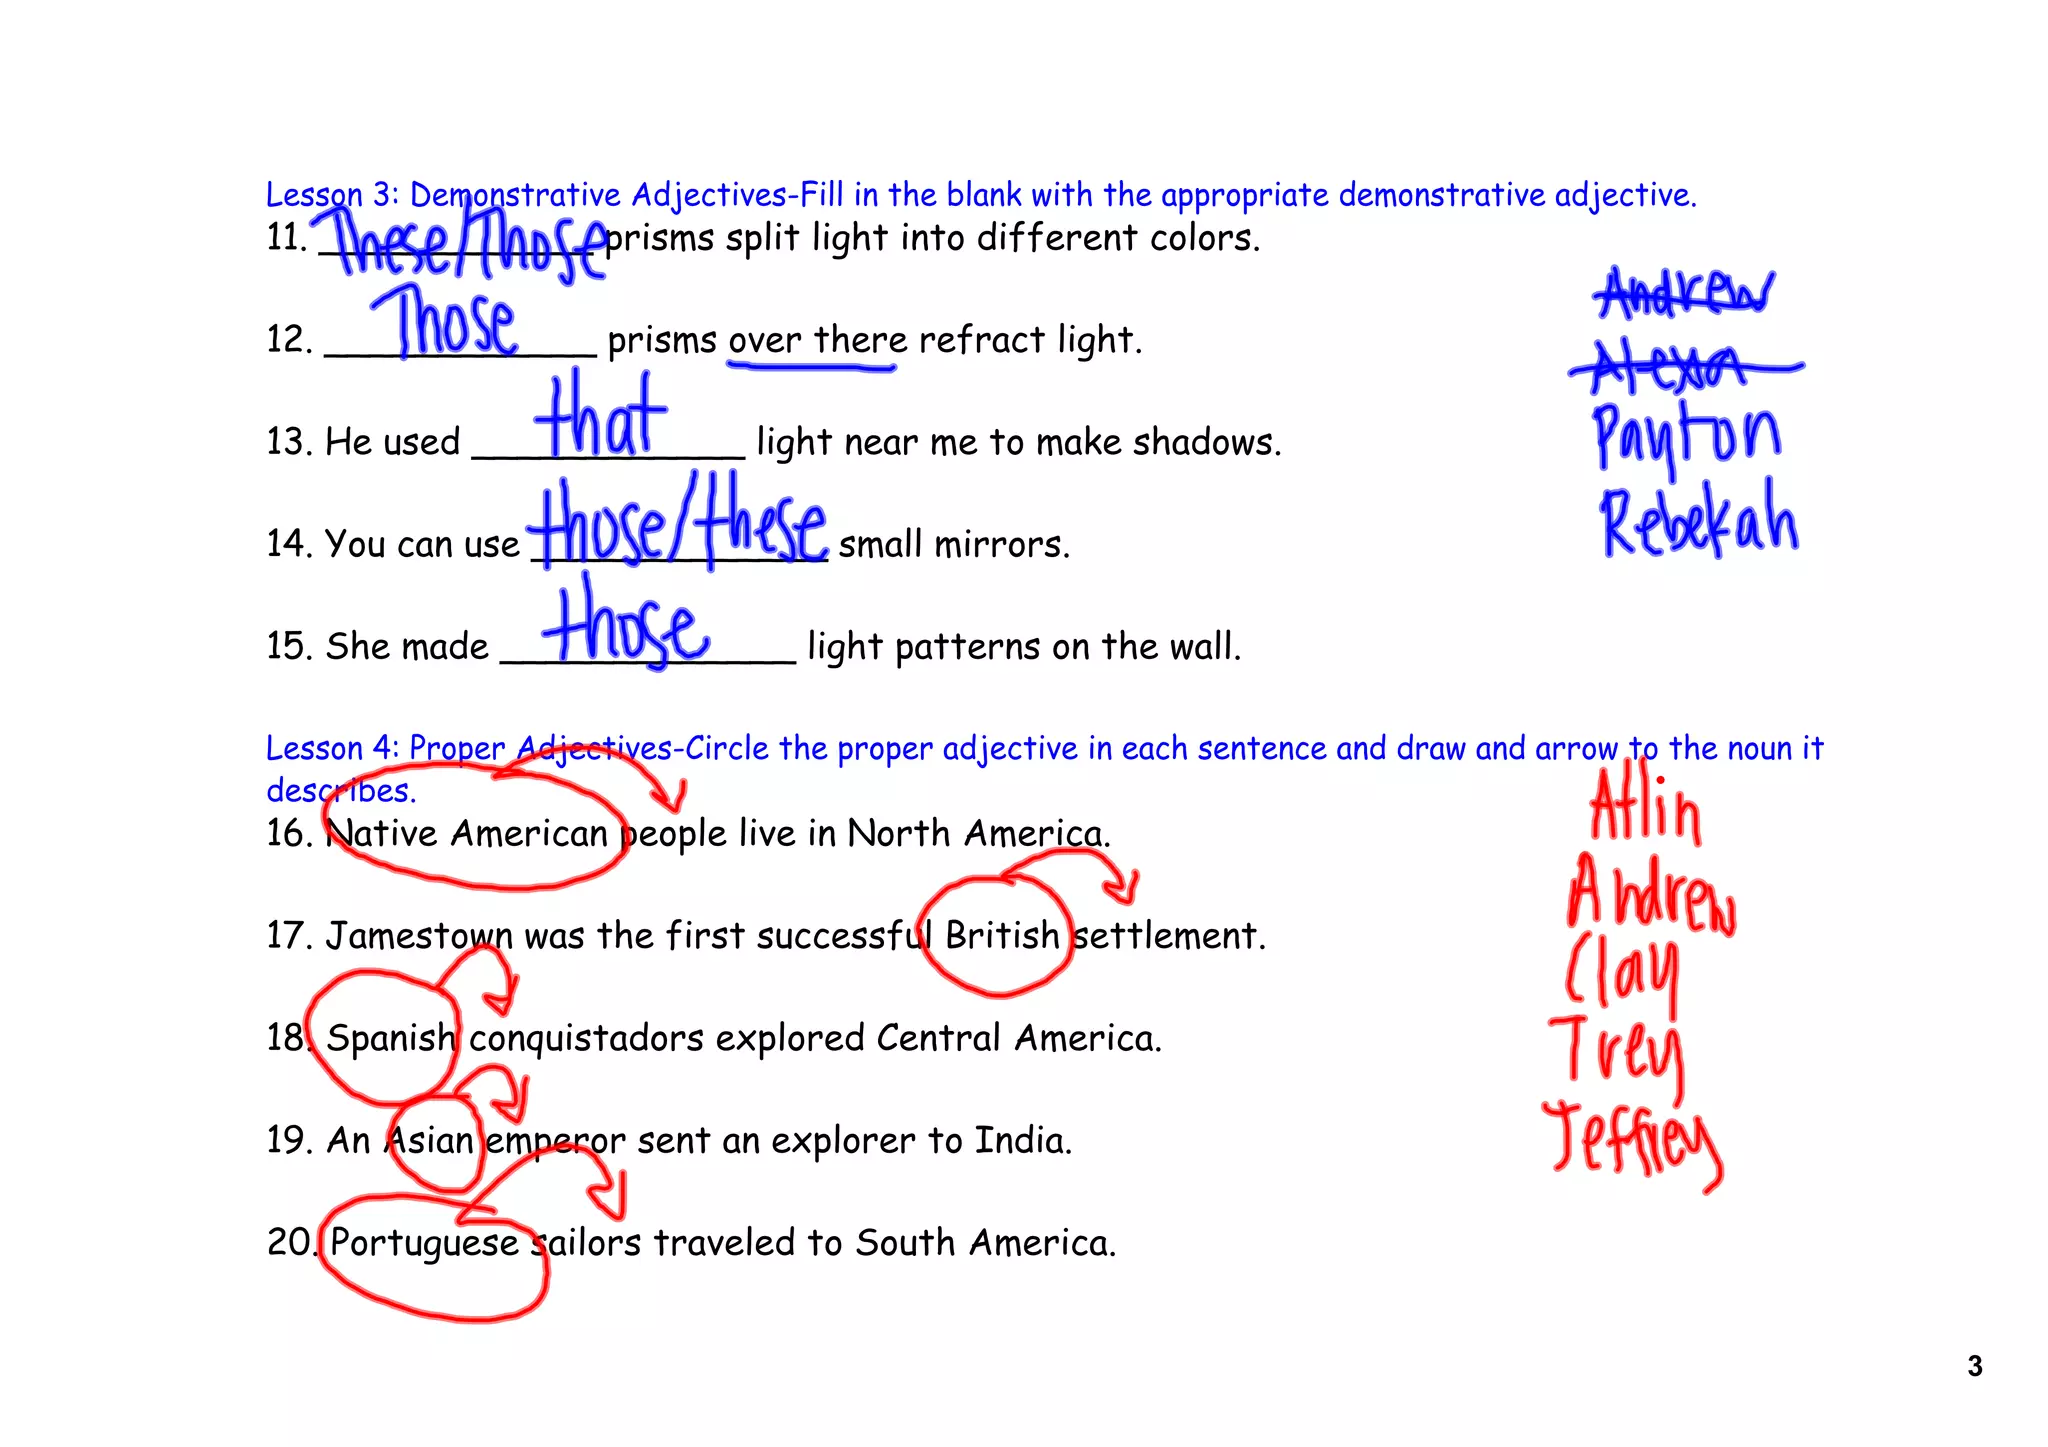 Lesson 3: Demonstrative Adjectives-Fill in the blank with the appropriate demonstrative adjective.
11. These/Those prisms split light into different colors.
Andrew
12. Those prisms over there refract light.
Alexa
13. He used that light near me to make shadows.
Payton
14. You can use those/these small mirrors.
Rebekah
15. She made those light patterns on the wall.
Lesson 4: Proper Adjectives-Circle the proper adjective in each sentence and draw and arrow to the noun it
describes.
16. Native American people live in North America.
Atlin
17. Jamestown was the first successful British settlement.
Andrew
Clay
18. Spanish conquistadors explored Central America.
Trey
19. An Asian emperor sent an explorer to India.
Jeffrey
20. Portuguese sailors traveled to South America.
3